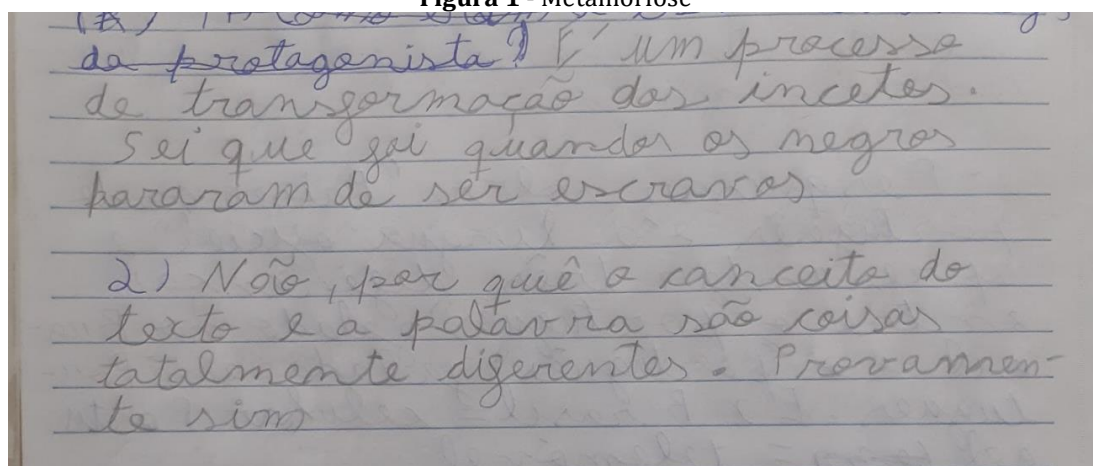 Figura 1 - Metamorfose
da protagonista? É um processo
de transformação dos incetos.
Sei que foi quandos os negros
pararam de ser escravos
2) Não, por quê o conceito do
texto e a palavra são coisas
totalmente diferentes. Provamen-
te sim